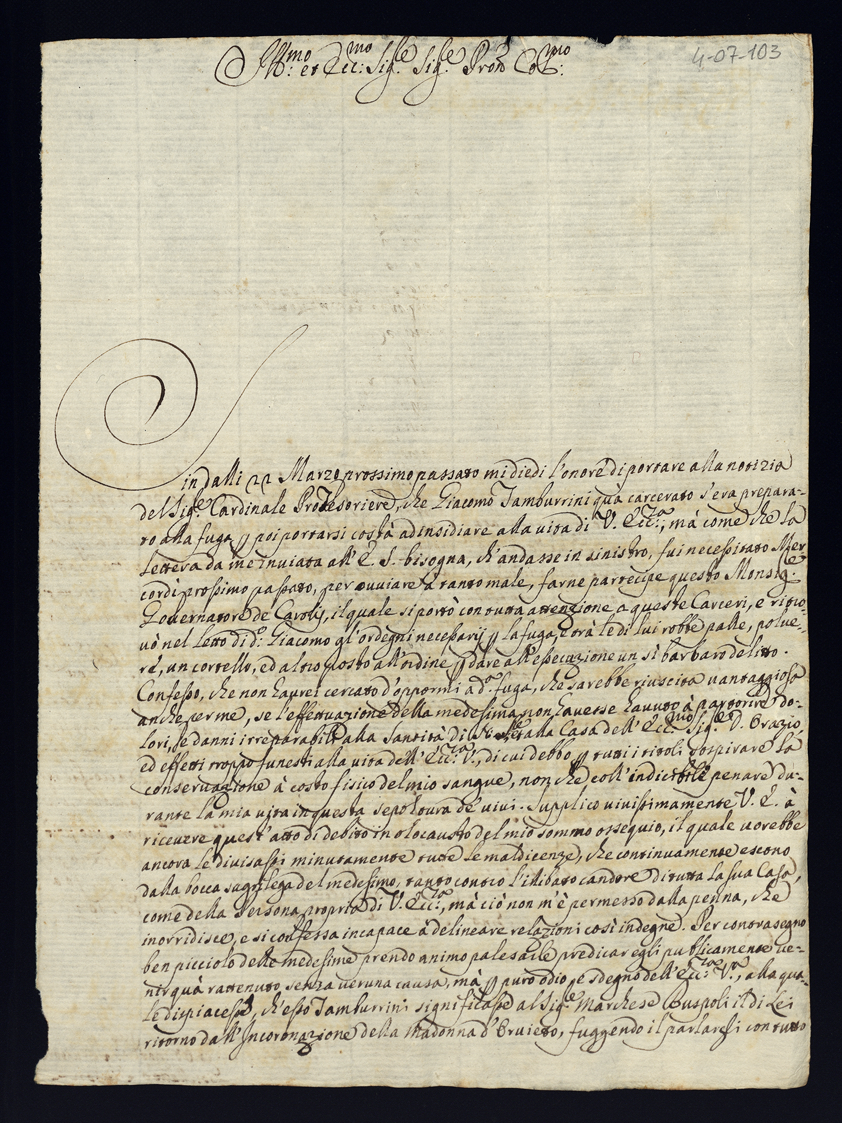 Ill:mo et Ecc:mo Sig:re Sig:re Pron Col:mo
4-07-103
Sin dalli 22 Marzo prossimo passato mi diedi l'onore di portare alla notizia
del Sig:e Cardinale Protesoriere, che Giacomo Tamburrini quà carcerato s'era prepara-
to alla fuga p poi portarsi costà ad insidiare alla vita di V. Ecc:za, mà come che la
lettera da me inviata all'E. S. bisogna, ch'andasse in sinistro, fui necessitato Mer
cordì prossimo passato, per ovviare à tanto male, farne partecipe questo Monsig:re
Governatore de Carolij, il quale si portò con tutta attenzione a queste Carceri, e ritro-
vò nel letto di d:o Giacomo gl'ordegni necessarij p la fuga, e trà le di lui robbe palle, polve-
re, un cortello, ed altro posto all'ordine p dare all'essecuzione un sì barbaro delitto.
Confesso, che non haurei cercato d'oppormi ad:a fuga, che sarebbe riuscita vantaggiosa
anche per me, se l'effettuazione della medesima non havesse havuto à partorire do-
lori, e danni irreparabili alla Santità di alla Casa dell'Ecc:mo Sig:e D. Orazio,
ed effetti troppo funesti alla vita dell'Ecc:za V., di cui debbo p tutti i titoli sospirare la
conservazione à costo fisico del mio sangue, non che coll'indicibile penare du-
rante la mia vita in questa sepoltura de vivi. Supplico vivissimamente V. E. à
ricevere quest'atto di debito in olocausto del mio sommo ossequio, il quale vorrebbe
ancora le divisassi minutamente tutte le maldicenze, che continuamente escono
dalla bocca sagrilega del medesimo, tanto contro l'illibato candore di tutta la sua Casa,
come della Persona propria di V. Ecc:za, mà ciò non m'è permesso dalla penna, che
inorridisce, e si confessa incapace à delineare relazioni così indegne. Per contrasegno
ben picciolo delle medesime prendo animo palesarle predicar egli publicamente ve-
nir quà rattenuto, senza veruna causa, mà p puro odio, e sdegno dell'Ecc:za V:ra, alla qua-
le dispiacesse, ch'esso Tamburrini significasse al Sig:e Marchese Ruspoli il di Lei
ritorno dall'Incoronazione della Madonna d'Orvieto, fuggendo il parlaresi con tutto